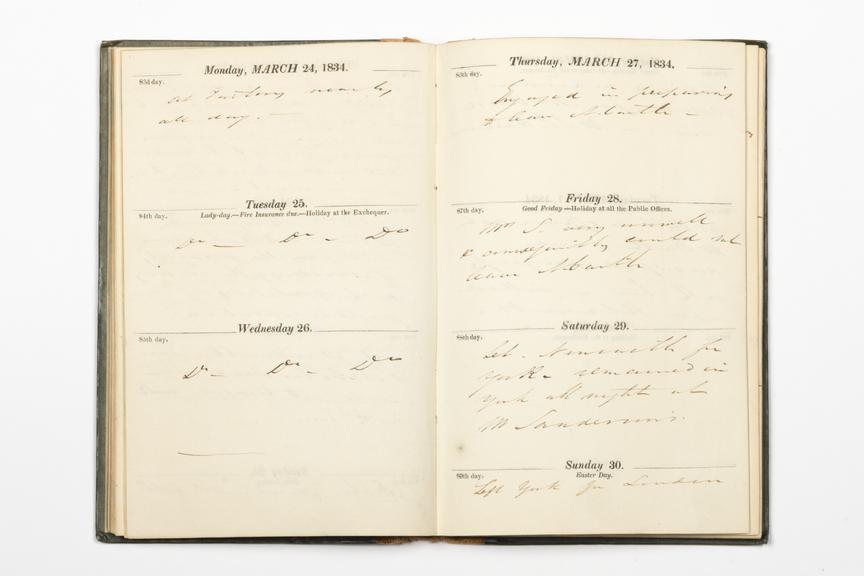 Monday, MARCH 24, 1834.
83d day.
at Factory nearly
all day. —
Tuesday 25.
84th day.
Lady-day.—Fire Insurance due.—Holiday at the Exchequer.
Do — Do — Do
Wednesday 26.
85th day.
Do — Do — Do
Thursday, MARCH 27, 1834.
86th day.
Engaged in preparing
to leave
Friday 28.
87th day.
Good Friday.—Holiday at all the Public Offices.
Mrs S. very unwell
& consequently could not
leave
Saturday 29.
88th day.
Left Newcastle for
York — remained in
York all night at
Mr Sanderson's.
Sunday 30.
89th day.
Easter Day.
Left York for London